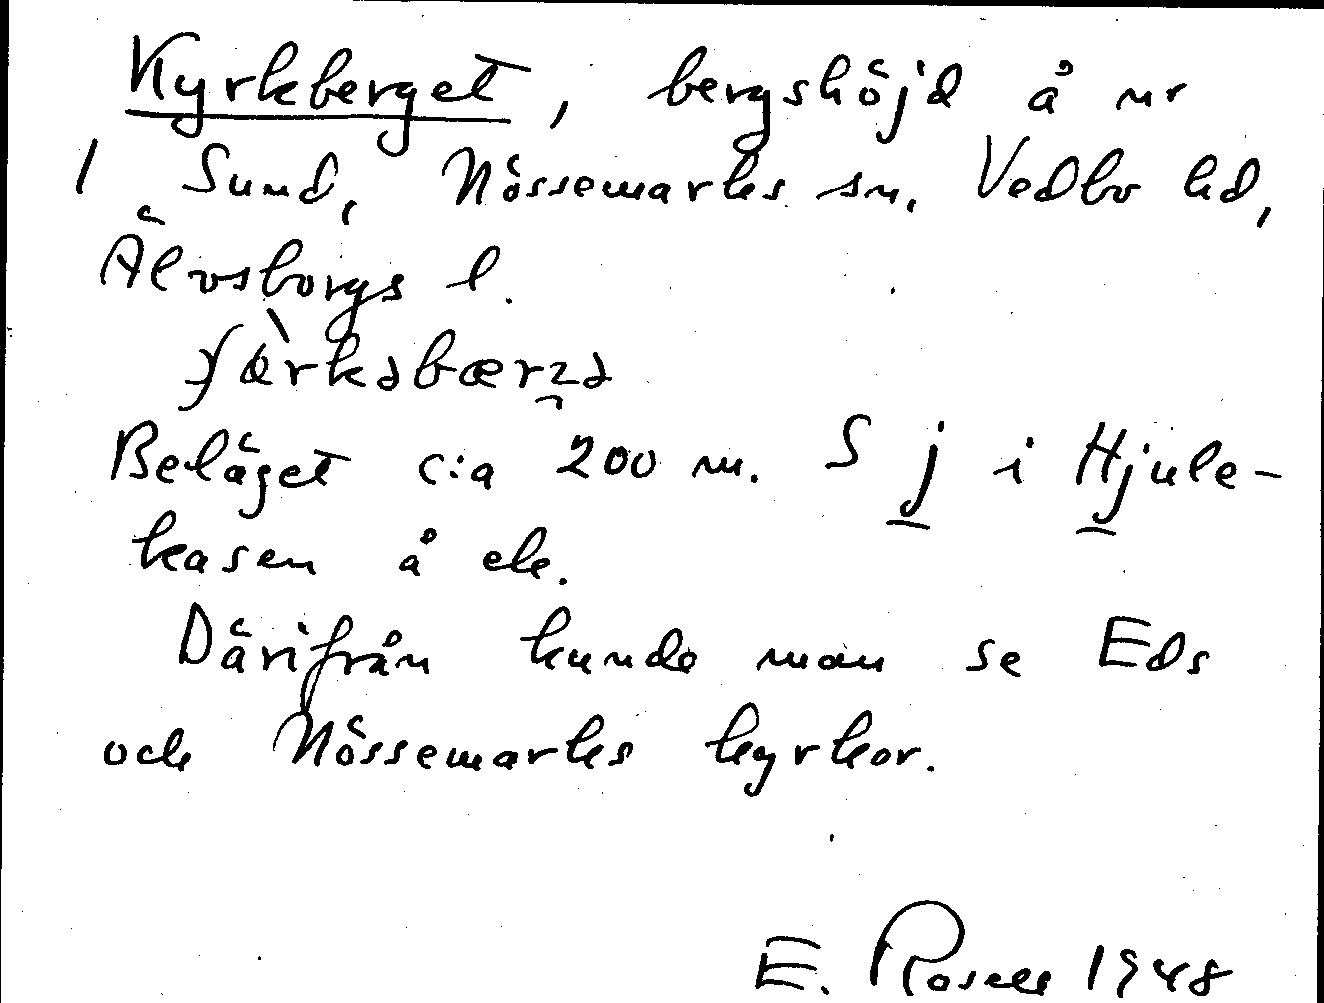 Kyrkberget, bergshöjd å nr
1 Sund, Nössemarks sn. Vedbo hd,
Älvsborgs l.
Beläget c:a 200 m. S j i Hjule-
kasen å ek.
Därifrån kunde man se Eds
och Nössemarks kyrkor.
E. Rosell 1948